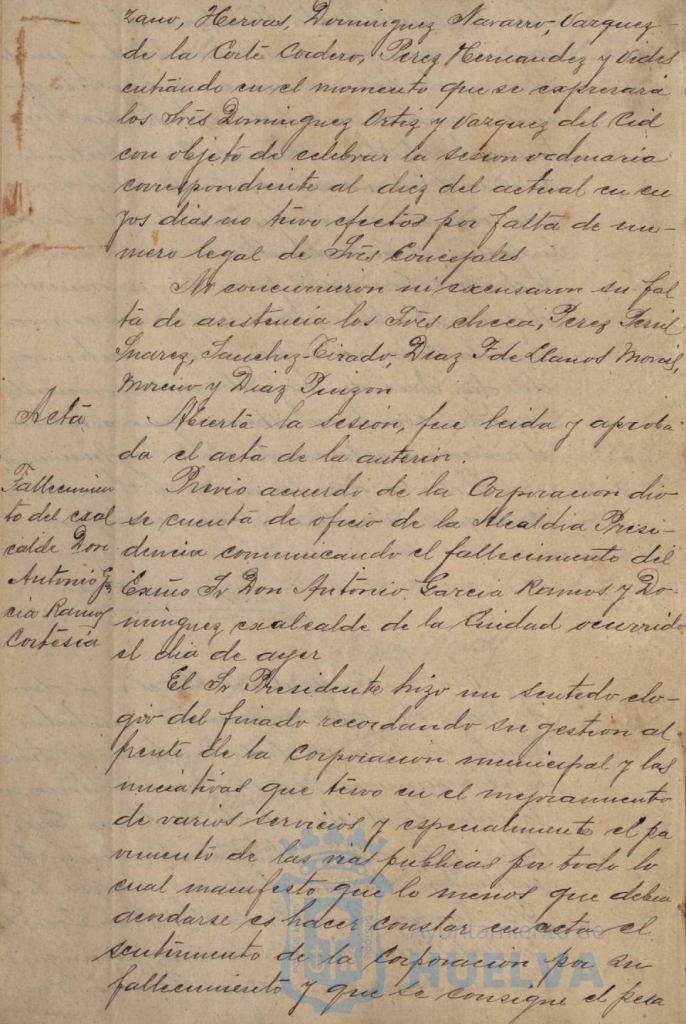 zano, Hervas, Dominguez Navarro, Vazquez
de la Corte Cordero, Perez Hernandez y Vides
entrando en el momento que se expresará
los Srẽs Dominguez Ortiz y Vazquez del Cid
con objeto de celebrar la sesion ordinaria
correspondiente al diez del actual en cu
yos dias no tuvo efectos por falta de nu-
mero legal de Srẽs Concejales
No concurrieron ni excusaron su fal
ta de asistencia los Srẽs checa, Perez
Suarez, Sanchez-Tirado, Diaz F de Llanos Monis,
Moreno y Diaz Pinzon
Acta
Abierta la sesion, fue leida y aproba
da el acta de la anterior.
Fallecimien
to del exal
calde Don
Antonio Gar
cia Ramos
Cortesia
Previo acuerdo de la Corporacion dio
se cuenta de oficio de la Alcaldia Presi-
dencia comunicando el fallecimiento del
Exm̃o Sr Don Antonio Garcia Ramos y Do-
minguez exalcalde de la Ciudad ocurrido
el dia de ayer
El Sr Presidente hizo un sentido elo-
gio del finado recordando su gestion al
frente de la Corporacion municipal y las
iniciativas que tuvo en el mejoramiento
de varios servicios y especialmente el pa
vimento de las vias publicas por todo lo
cual manifesto que lo menos que debia
acordarse es hacer constar en acta el
sentimiento de la Corporacion por su
fallecimiento y que se consigne el pesa
Ayuntamiento de
HUELVA